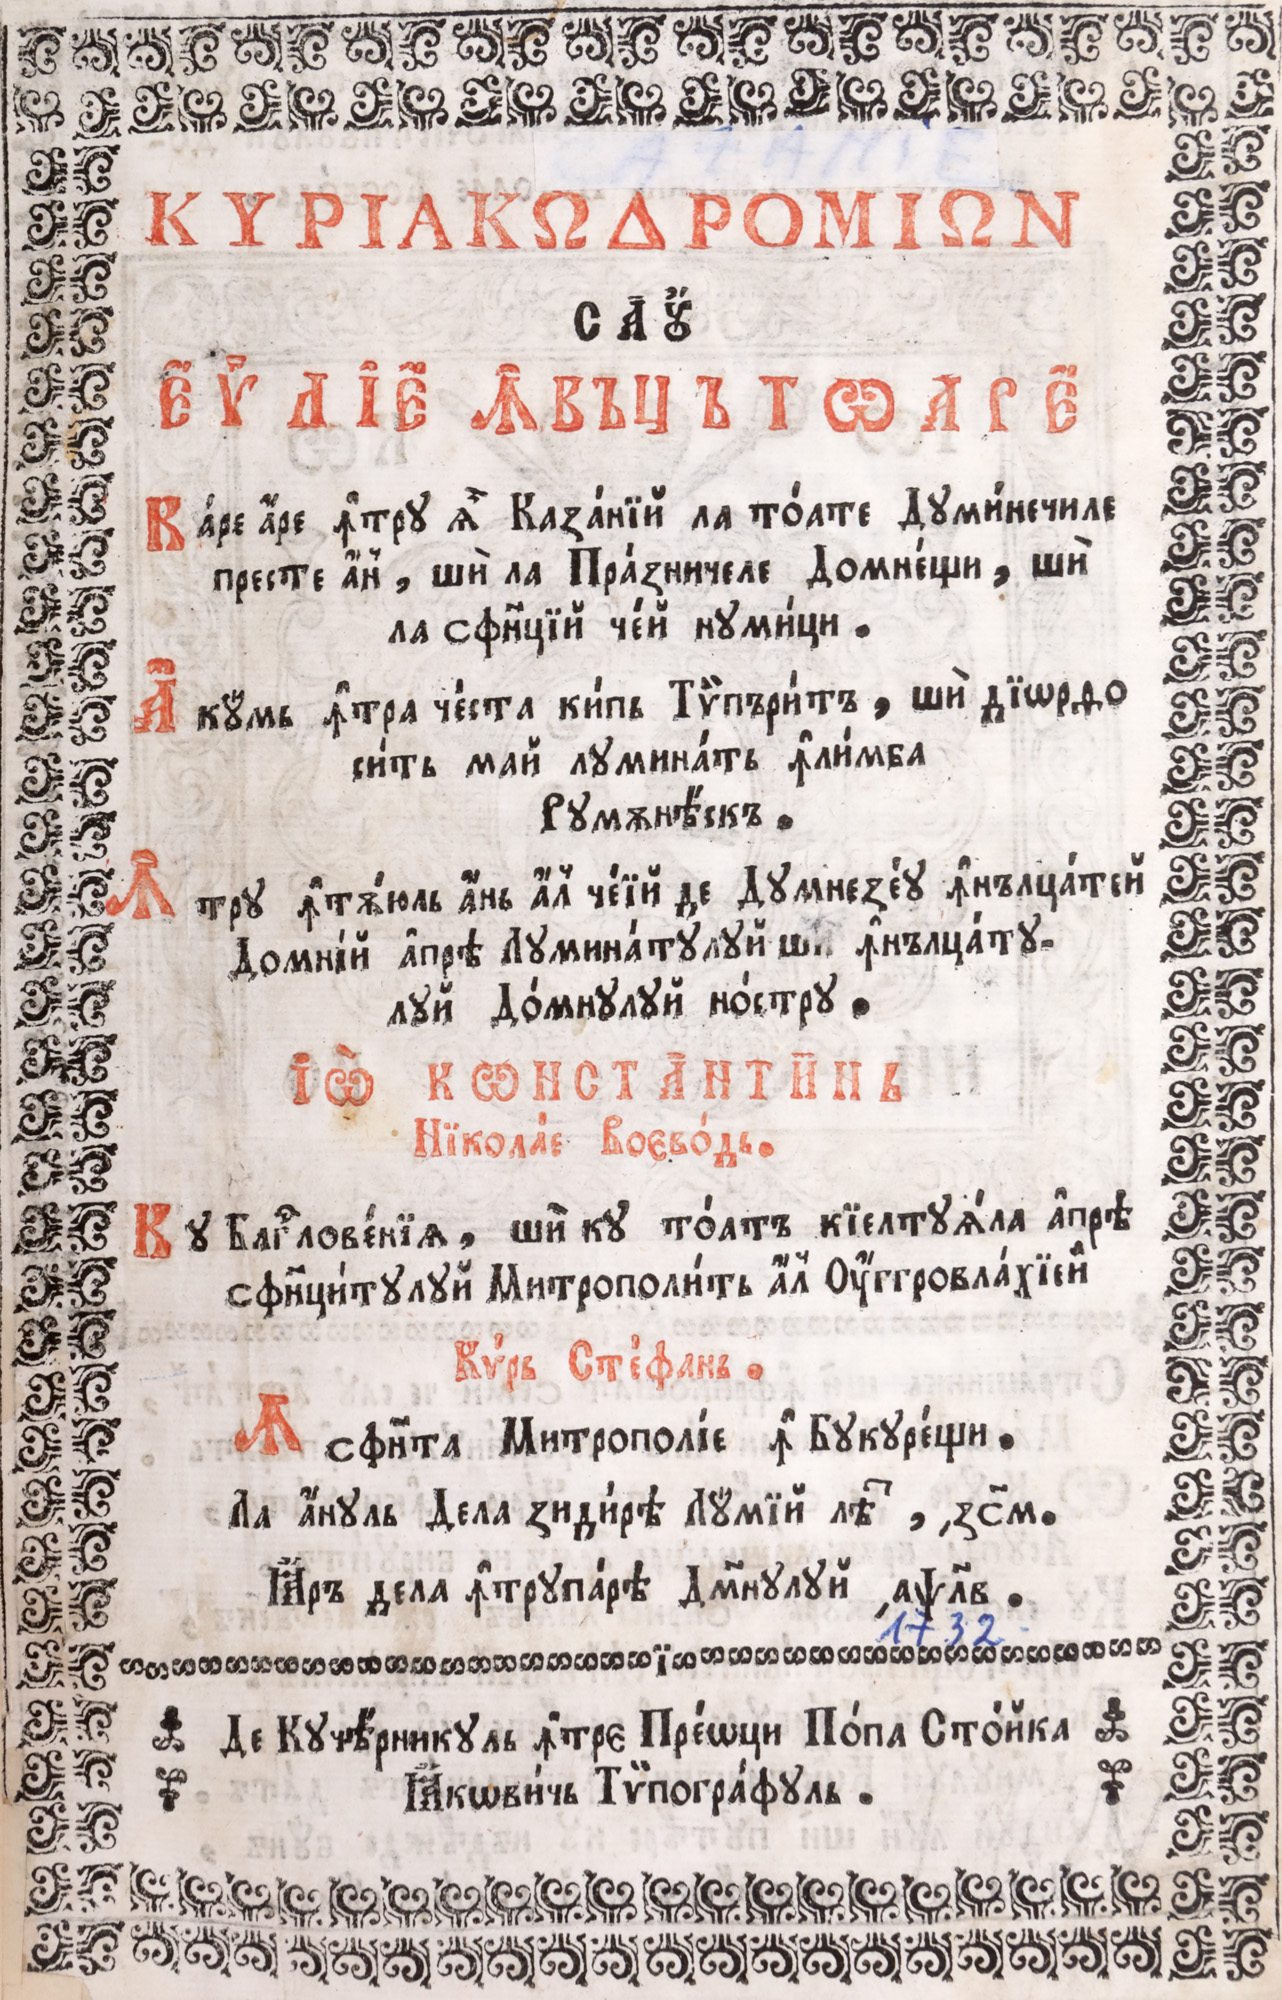 КУРІАКѠΔРОМІѠN
САꙊ
Є҆Ѵ҆ЛІ҆Є҆ ꙞВЪЦЪТѠАРЕ҆
Ка́ре а҆́ре ꙟ҆тру ѧ҆̀ Каза́нїй ла то́ате Думи́нечиле
престе а҆́н, шѝ ла Пра́зничеле Домне́щи, шѝ
ла сфн҃цїй че́й нуми́ци.
А҆кꙋ́мь ꙟ҆тра че́ста ки́пь Тѷпъри́тъ, шѝ дїѡрѳо
си́ть май лумина́ть ꙟ҆ли́мба
Румѫнѣ́скъ.
Ꙟ҆тру ꙟ҆тѫ́юль а҆́нь а҆́л че́їй де Думнезе́у ꙟ҆нълца́тей
Домні́й а҆прѣ Лумина́тулуй ши ꙟ҆нълца́ту-
луй До́мнулуй но́стру.
І҆Ѡ҆̀ КѠНСТАНТИ́НЬ
Нїкола́е Воєво́дь.
Ку Баг҃ослове́нїѧ, шѝ ку то́атъ кїелтуѧ́ла а҆прѣ́
сфн҃ци́тулуй Митрополи́ть а҆́л Оу҆́ггровла́хїей
Кѵ́рь Сте́фань.
Ꙟ сфн҃та Митрополі́е ꙟ҆ Букуре́щи.
Ла а҆́нуль Дела зиди́рѣ Лꙋ́мїй лѣт, ҂зс҃м.
Ꙗ҆́ръ дела ꙟ҆трупа́рѣ Дм҃нулуй ҂аѱл҃в.
1732
ї
Де Кучѣ́рникуль ꙟ҆трє Пре́ѡци По́па Сто́йка
Ꙗ҆кѡви́чь Тѷпогра́фуль.